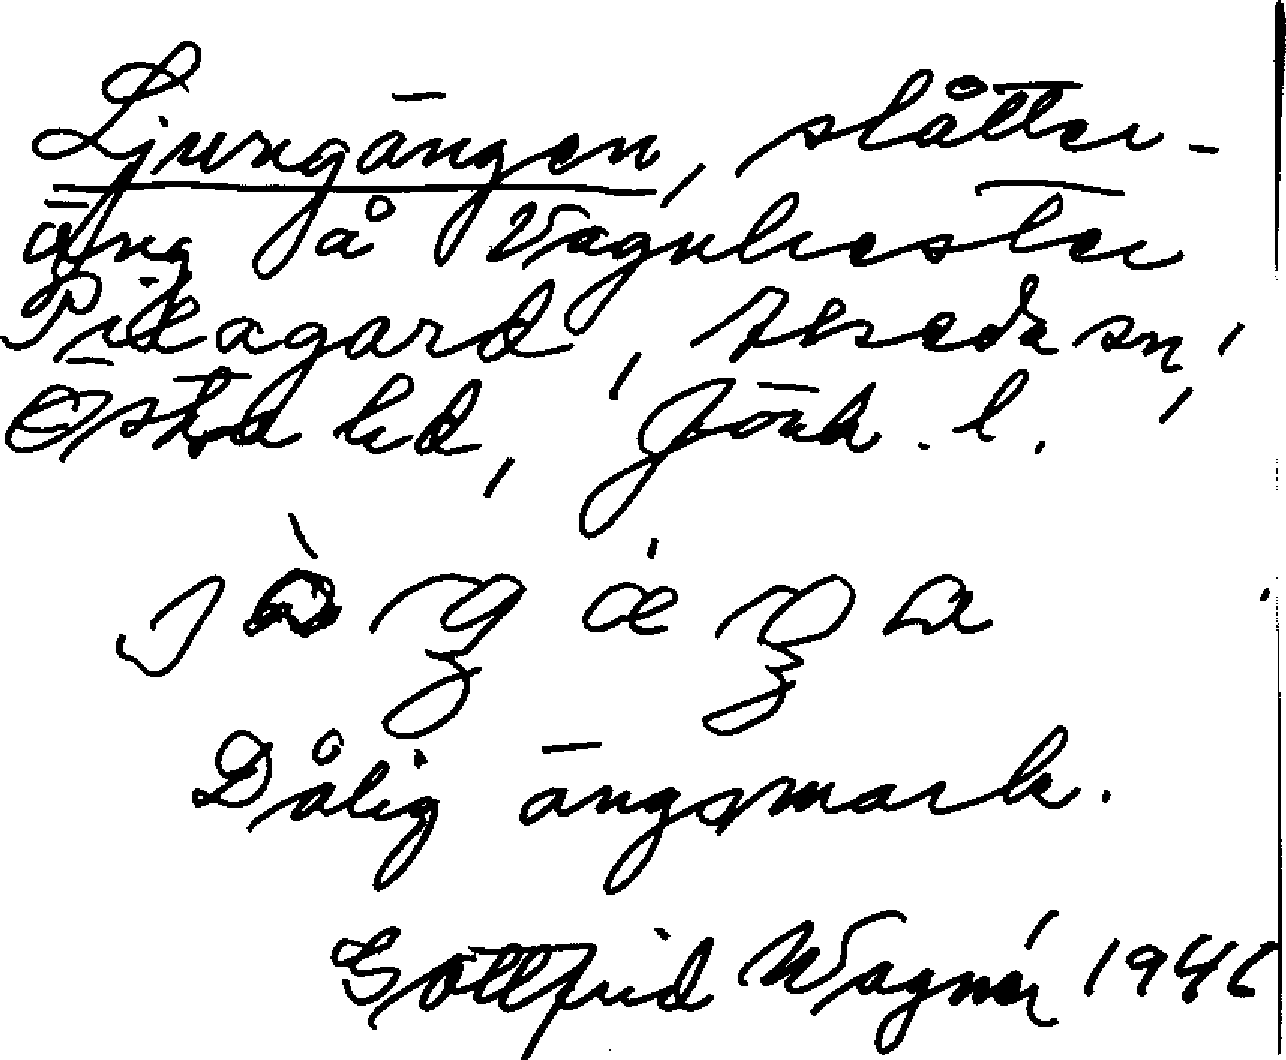 Ljungängen, slåtter-
äng på Vagnhester
Pilagard, sn,
Östra hd, Jönk. l.
Dålig ängsmark.
Gottfrid Wagnér 1946